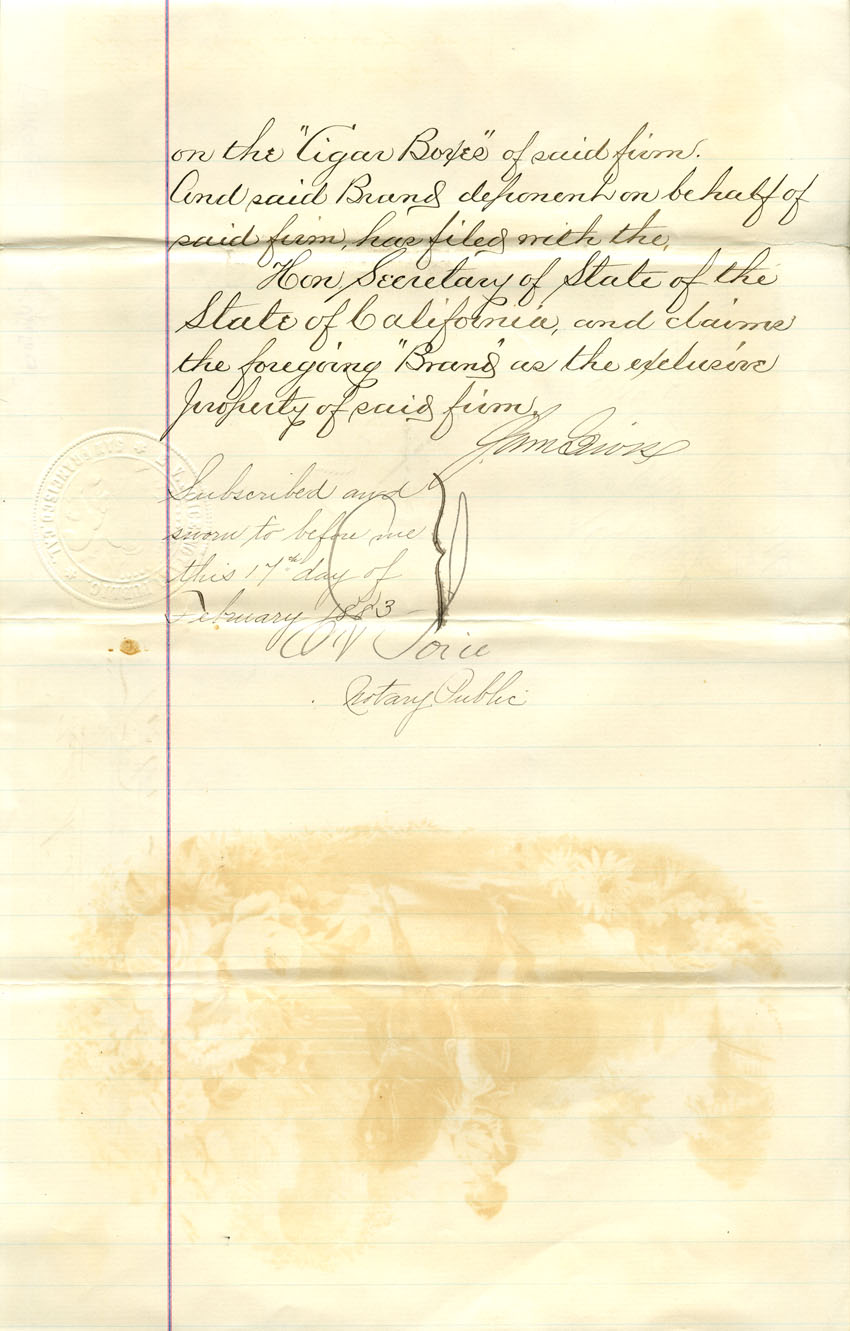 on the "Cigar Boxes" of said firm.
And said Brand deponent on behalf of
said firm, has filed with the,
Hon Secretary of State of the
State of California, and claims
the foregoing "Brand" as the exclusive
property of said firm.
Subscribed and
sworn to before me
this 17th day of
February 1883
Notary Public